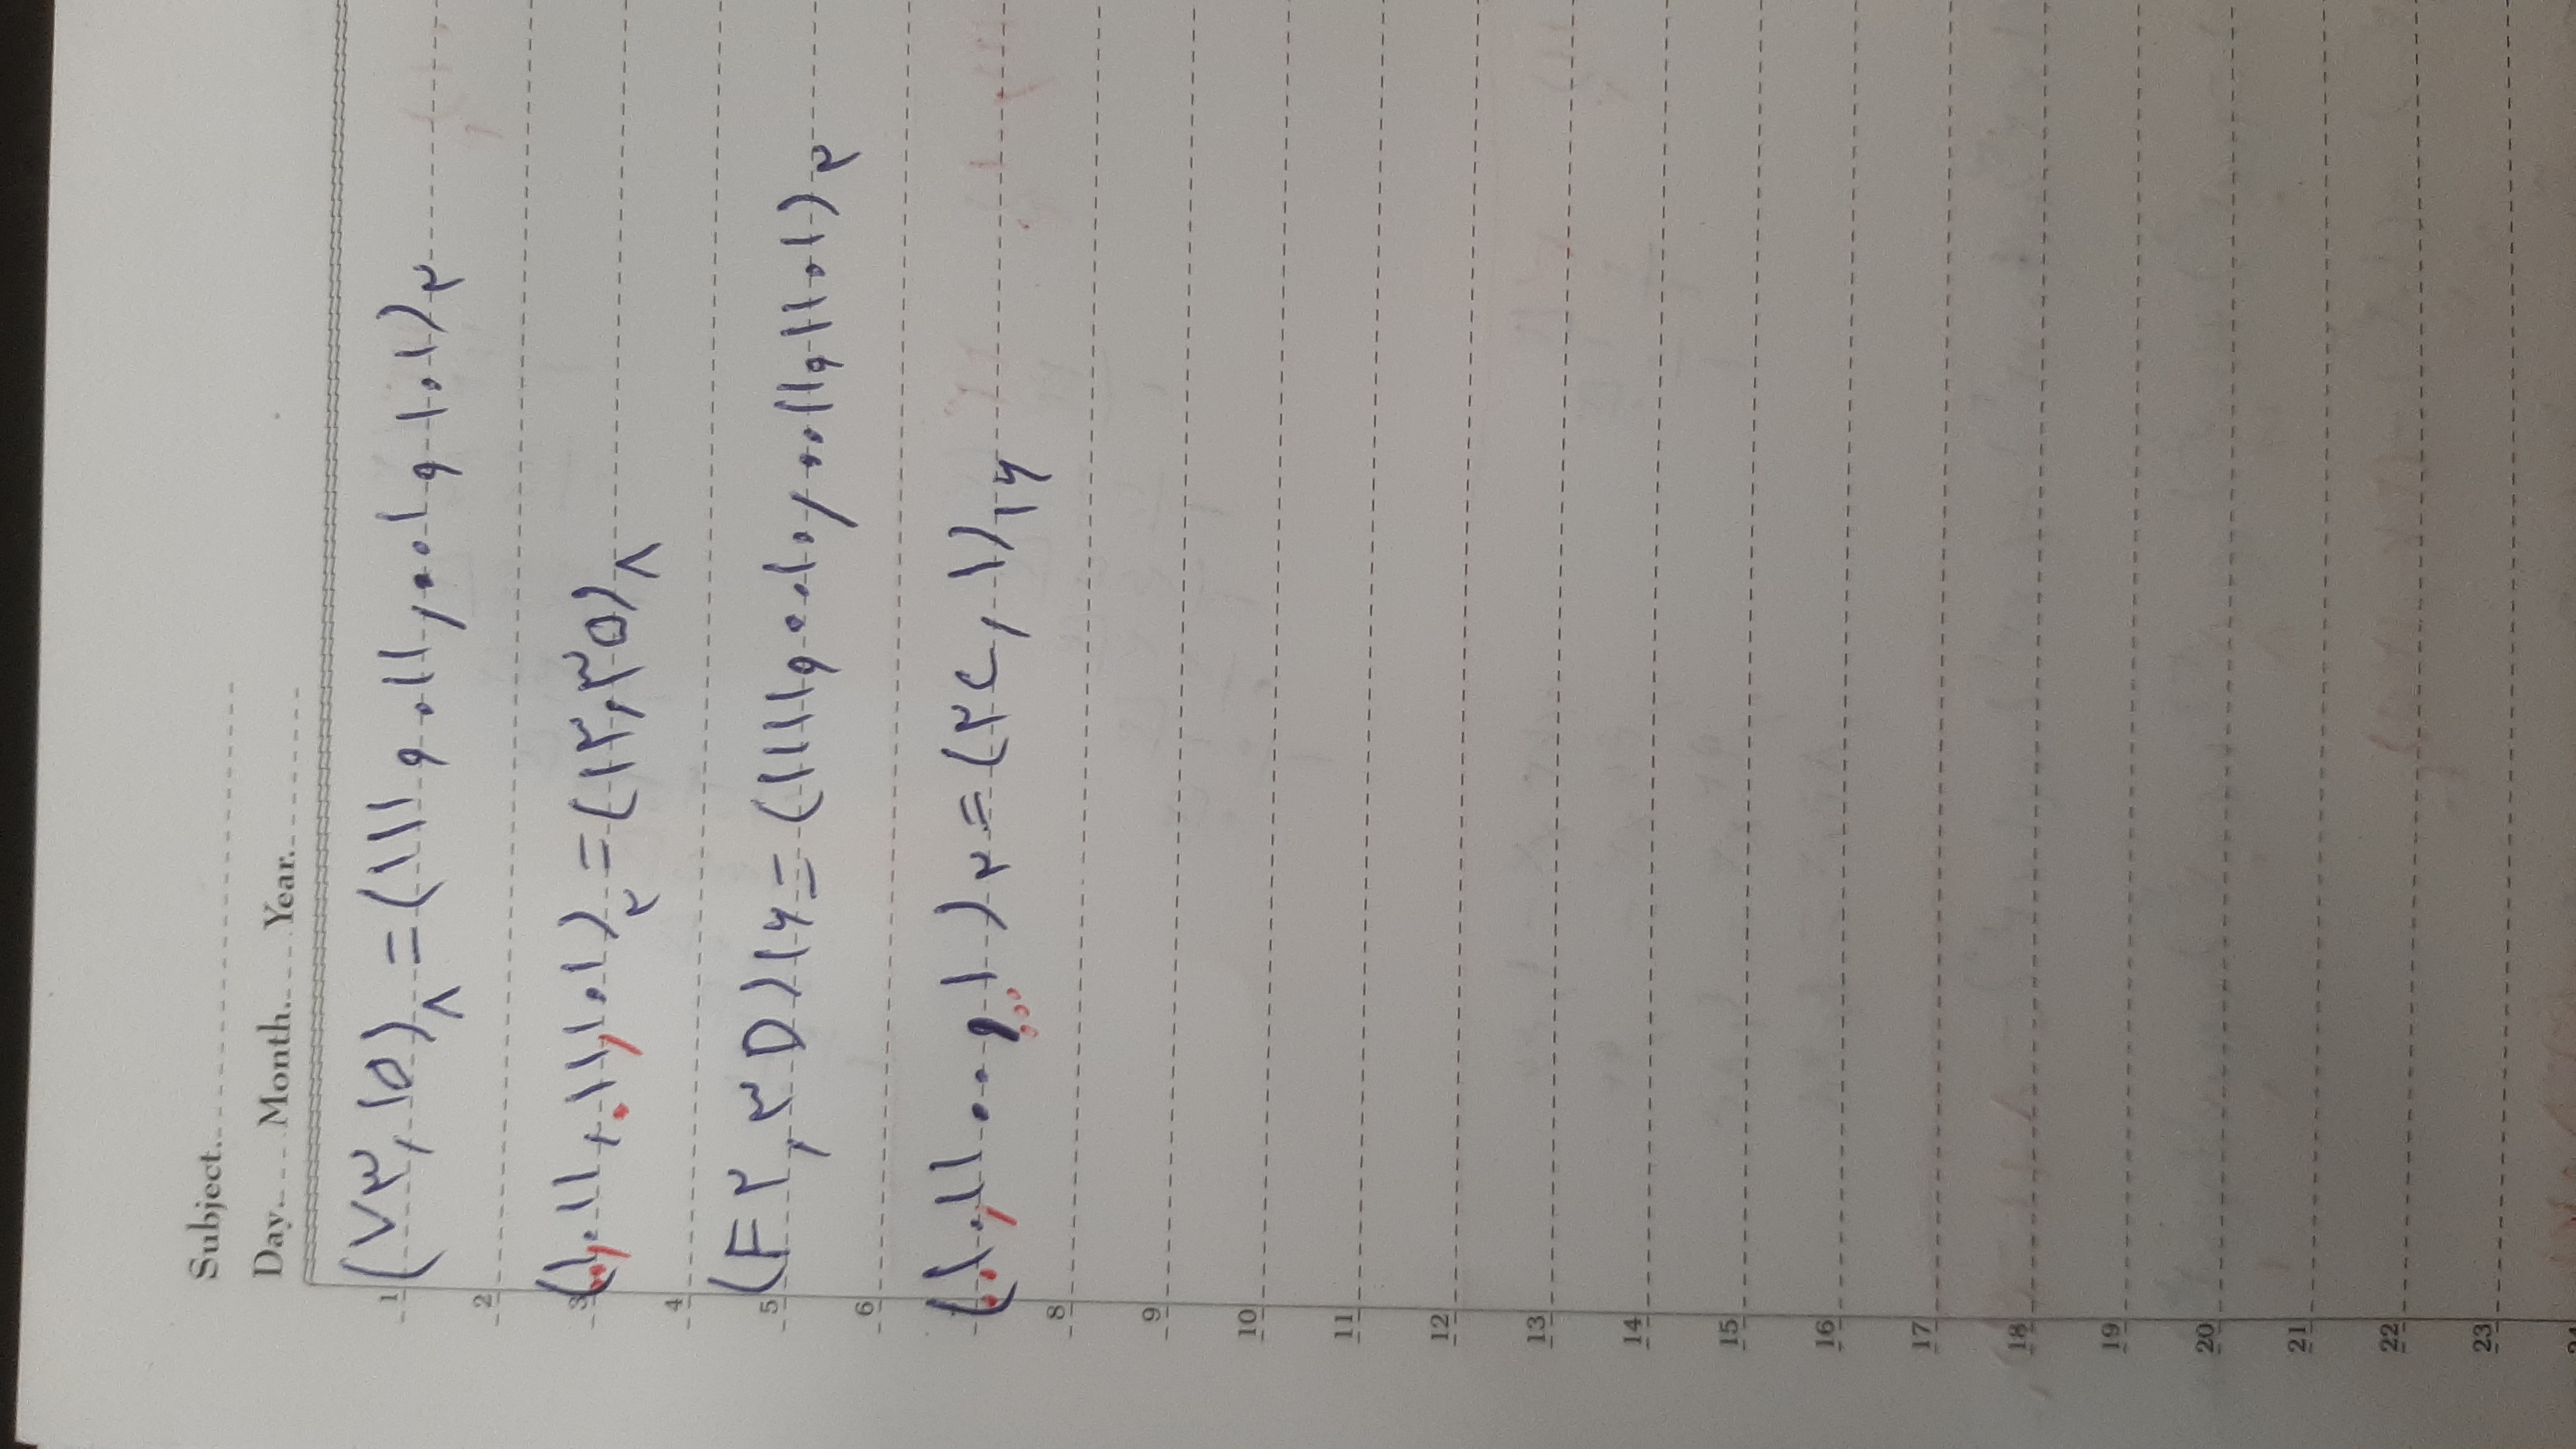 Subject.
Day. Month. Year.
1 (۷۳,۱۵)۸ = (۱۱۱ و ۰۱۱,۰۰۱ و ۱۰۱)۲
2
3 (۰۰۱,۰۱۱,۰۱۱,۱۰۱)۲ = (۱۳,۳۵)۸
4
5 (F۲,۳D)۱۶ = (۱۱۱۱و۰۰۱۰,۰۰۱۱و۱۱۰۱)۲
6
(۰۰۱۰,۱۱۰۰و۰۰۰۱)۲ = (۲C,۱)۱۶
8
9
10
11
12
13
14
15
16
17
18
19
20
21
22
23
24